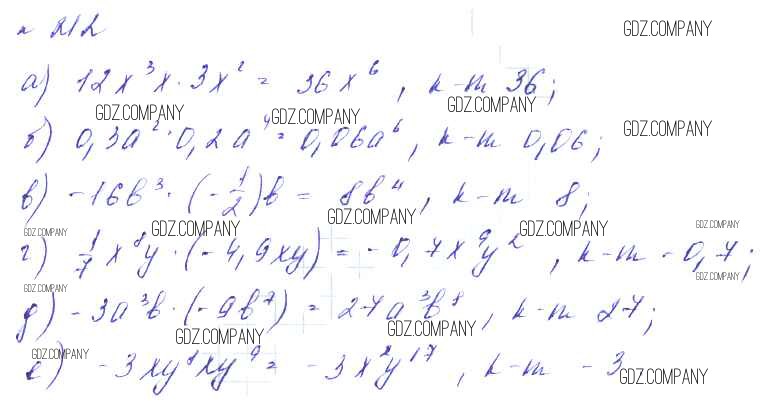 GDZ.COMPANY
№ 212
а) 12x³x · 3x² = 36x⁶, к-т 36;
GDZ.COMPANY GDZ.COMPANY GDZ.COMPANY
б) 0,3a² · 0,2a⁴ = 0,06a⁶, к-т 0,06; GDZ.COMPANY
в) -16b³ · (-1/2)b = 8b⁴, к-т 8;
GDZ.COMPANY GDZ.COMPANY GDZ.COMPANY GDZ.COMPANY GDZ.COMPANY
г) 1/7 x⁸y · (-4,9xy) = -0,7x⁹y², к-т -0,7;
GDZ.COMPANY GDZ.COMPANY
д) -3a³b · (-9b⁷) = 27a³b⁸, к-т 27;
GDZ.COMPANY GDZ.COMPANY GDZ.COMPANY
е) -3xy⁸xy⁹ = -3x²y¹⁷, к-т -3
GDZ.COMPANY